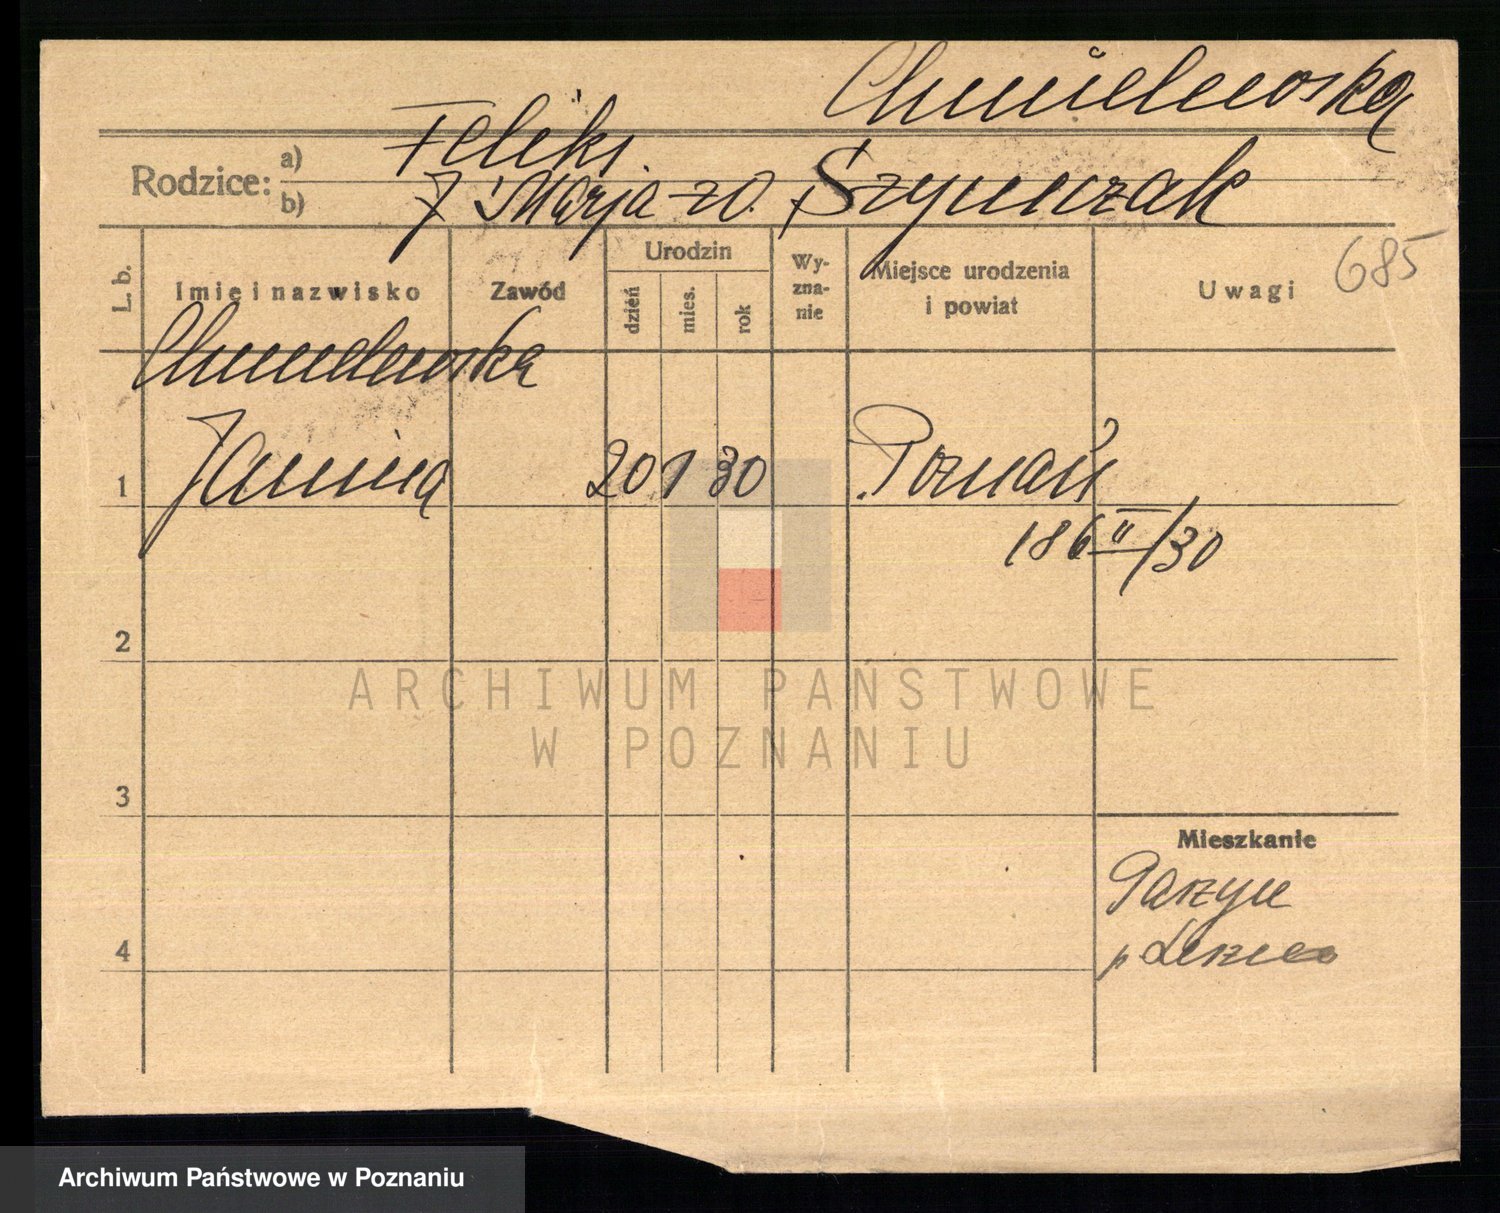 Chmielewska
Rodzice: a) Feliks
b) i Marja zd. Szymczak
685
L. b. Imię i nazwisko Zawód Urodzin dzień mies. rok Wyznanie Miejsce urodzenia i powiat Uwagi
Chmielewska
1 Janina 20 1 30 Poznań
186 II/30
2
ARCHIWUM PAŃSTWOWE
W POZNANIU
3
Mieszkanie
4
Archiwum Państwowe w Poznaniu